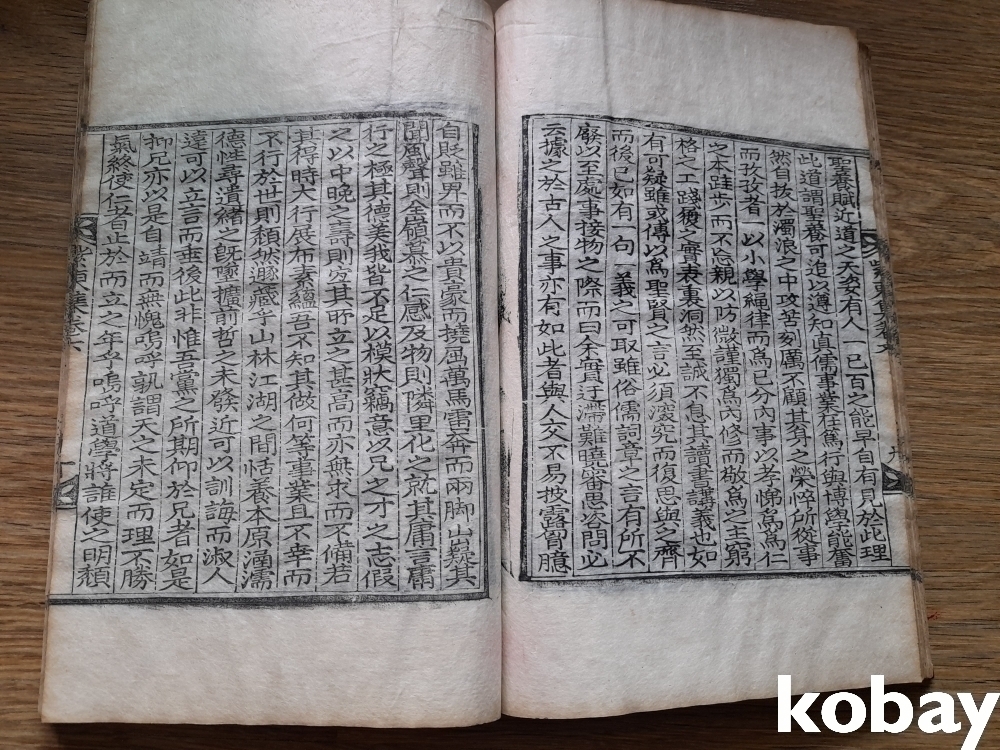 聖養賦近道之天姿有人一己百之能早自有見於此理
此道謂聖養可迨以溥知眞儒事業在篤行與博學能奮
然自拔於濁浪之中攻苦刻厲不顧其身之榮悴所從事
而孜孜者一以小學繩律而爲己分內事以孝悌爲爲仁
之本跬步而不忘親以防微謹獨爲內修而敬爲之主窮
格之工踐履之實表裏洞然至誠不息其讀書講義也如
有可疑雖或傳以爲聖賢之言必須深究而復思與之齊
而後已如有一句一義之可取雖俗儒詞章之言有所不
廢以至處事接物之際而曰余實迂滯難曉審思咨問必
云據之於古人之事亦有如此者與人交不易披露胷臆
自貶雖男而不以貴豪而撓屈萬馬雷奔而兩脚山嶷其
聞風聲則僉嶺慕之仁感及物則隣里化之就其庸言庸
行之極其德美我皆不足以模狀竊意以兄之才之志假
之以中晚之壽則究其所立之甚高而亦無求而不備若
其得時大行展布素蘊吾不知其做何等事業且不幸而
不行於世則頹然遯藏乎山林江湖之間恬養本原涵濡
德性尋遺緖之旣墜擴前哲之未發近可以訓誨而淑人
遠可以立言而垂後此非惟吾黨之所期仰於兄者如是
抑兄亦以是自靖而無愧嗚呼孰謂天之未定而理不勝
氣終使仁者止於而立之年乎嗚呼道學將誰使之明頹
kobay